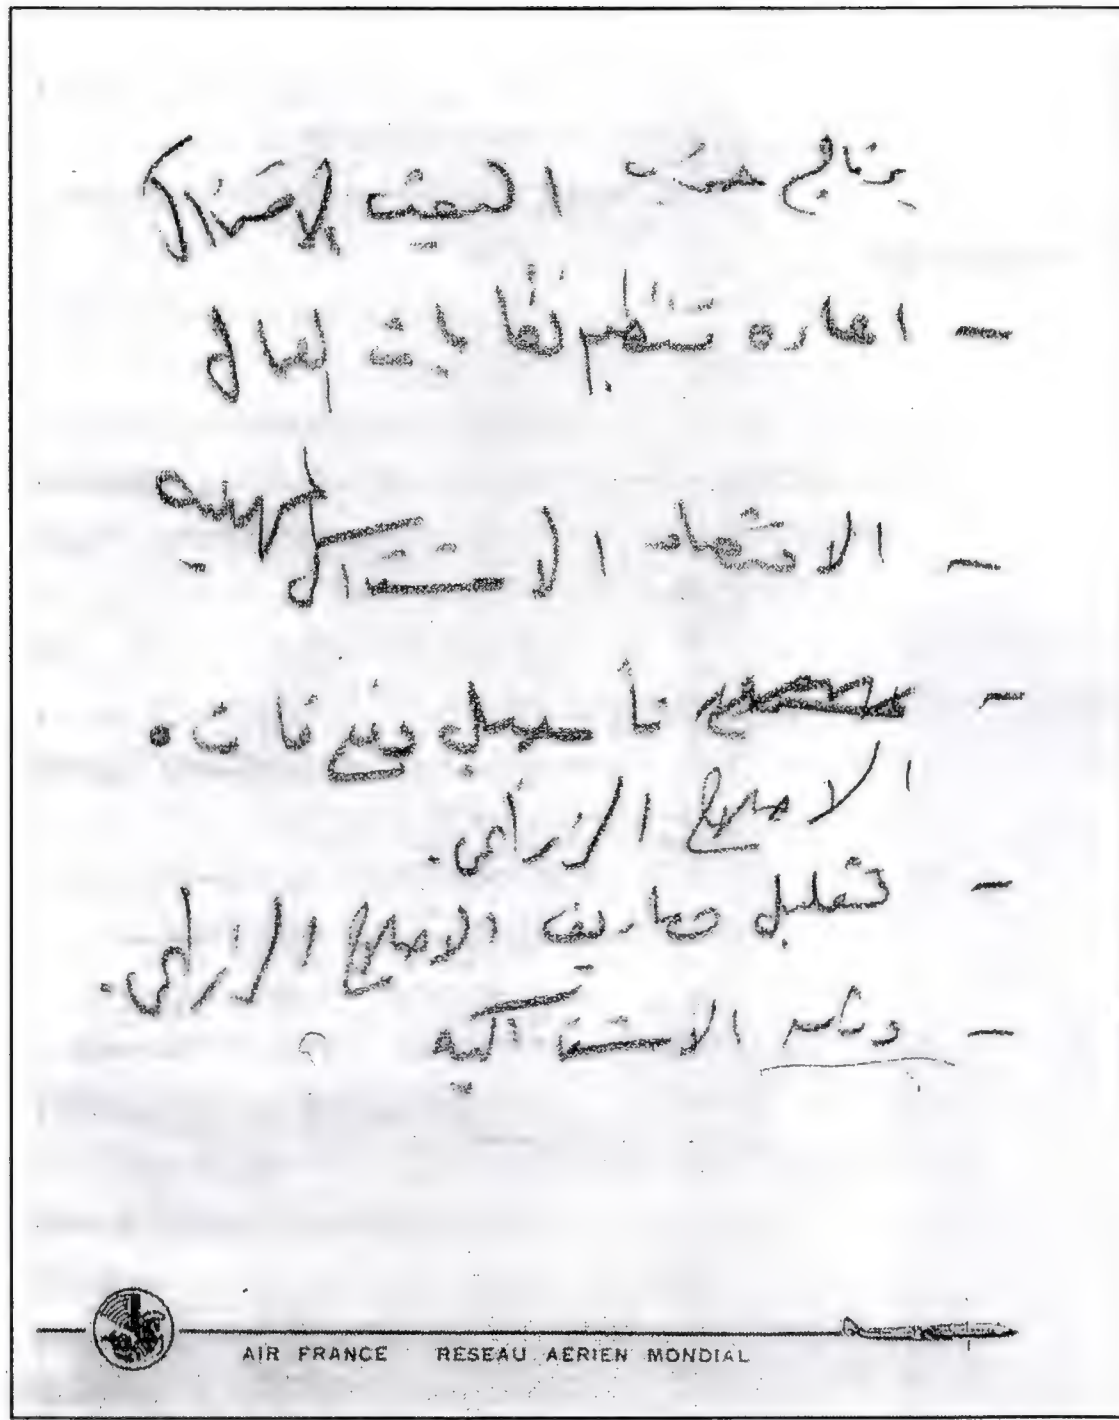 برنامج حزب البعث الاشتراكي
– اعاده تنظيم نقابات العمال
– الاقتصاد الاشتراكي
– تأ
الاصلاح الزراعي.
– تقليل مصاريف الاصلاح الزراعي.
– الاشتراكيه
AIR FRANCE RESEAU AERIEN MONDIAL